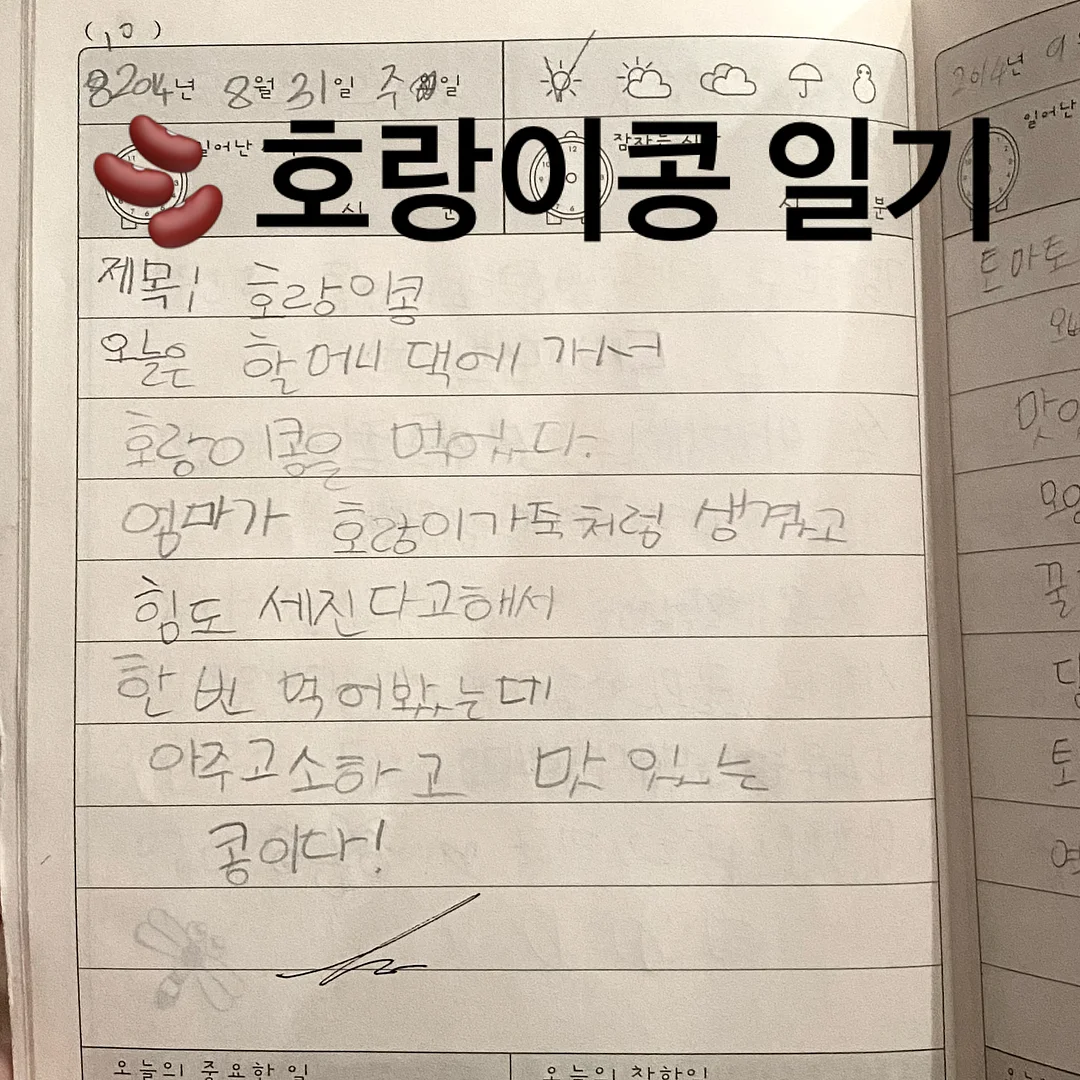 (10)
2014년 8월 31일 주일
호랑이콩 일기
일어난
잠자는 시
시 분
시 분
제목! 호랑이콩
오늘은 할머니 댁에 가서
호랑이콩을 먹었다.
엄마가 호랑이가죽처럼 생겼고
힘도 세진다고해서
한 번 먹어봤는데
아주고소하고 맛있는
콩이다!
오늘의 중요한 일
오늘의 착한일
2014년 9
일어난
토마토
맛있
모양
꿀
토